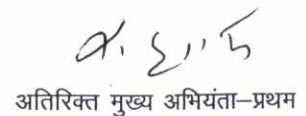 अतिरिक्त मुख्य अभियंता–प्रथम